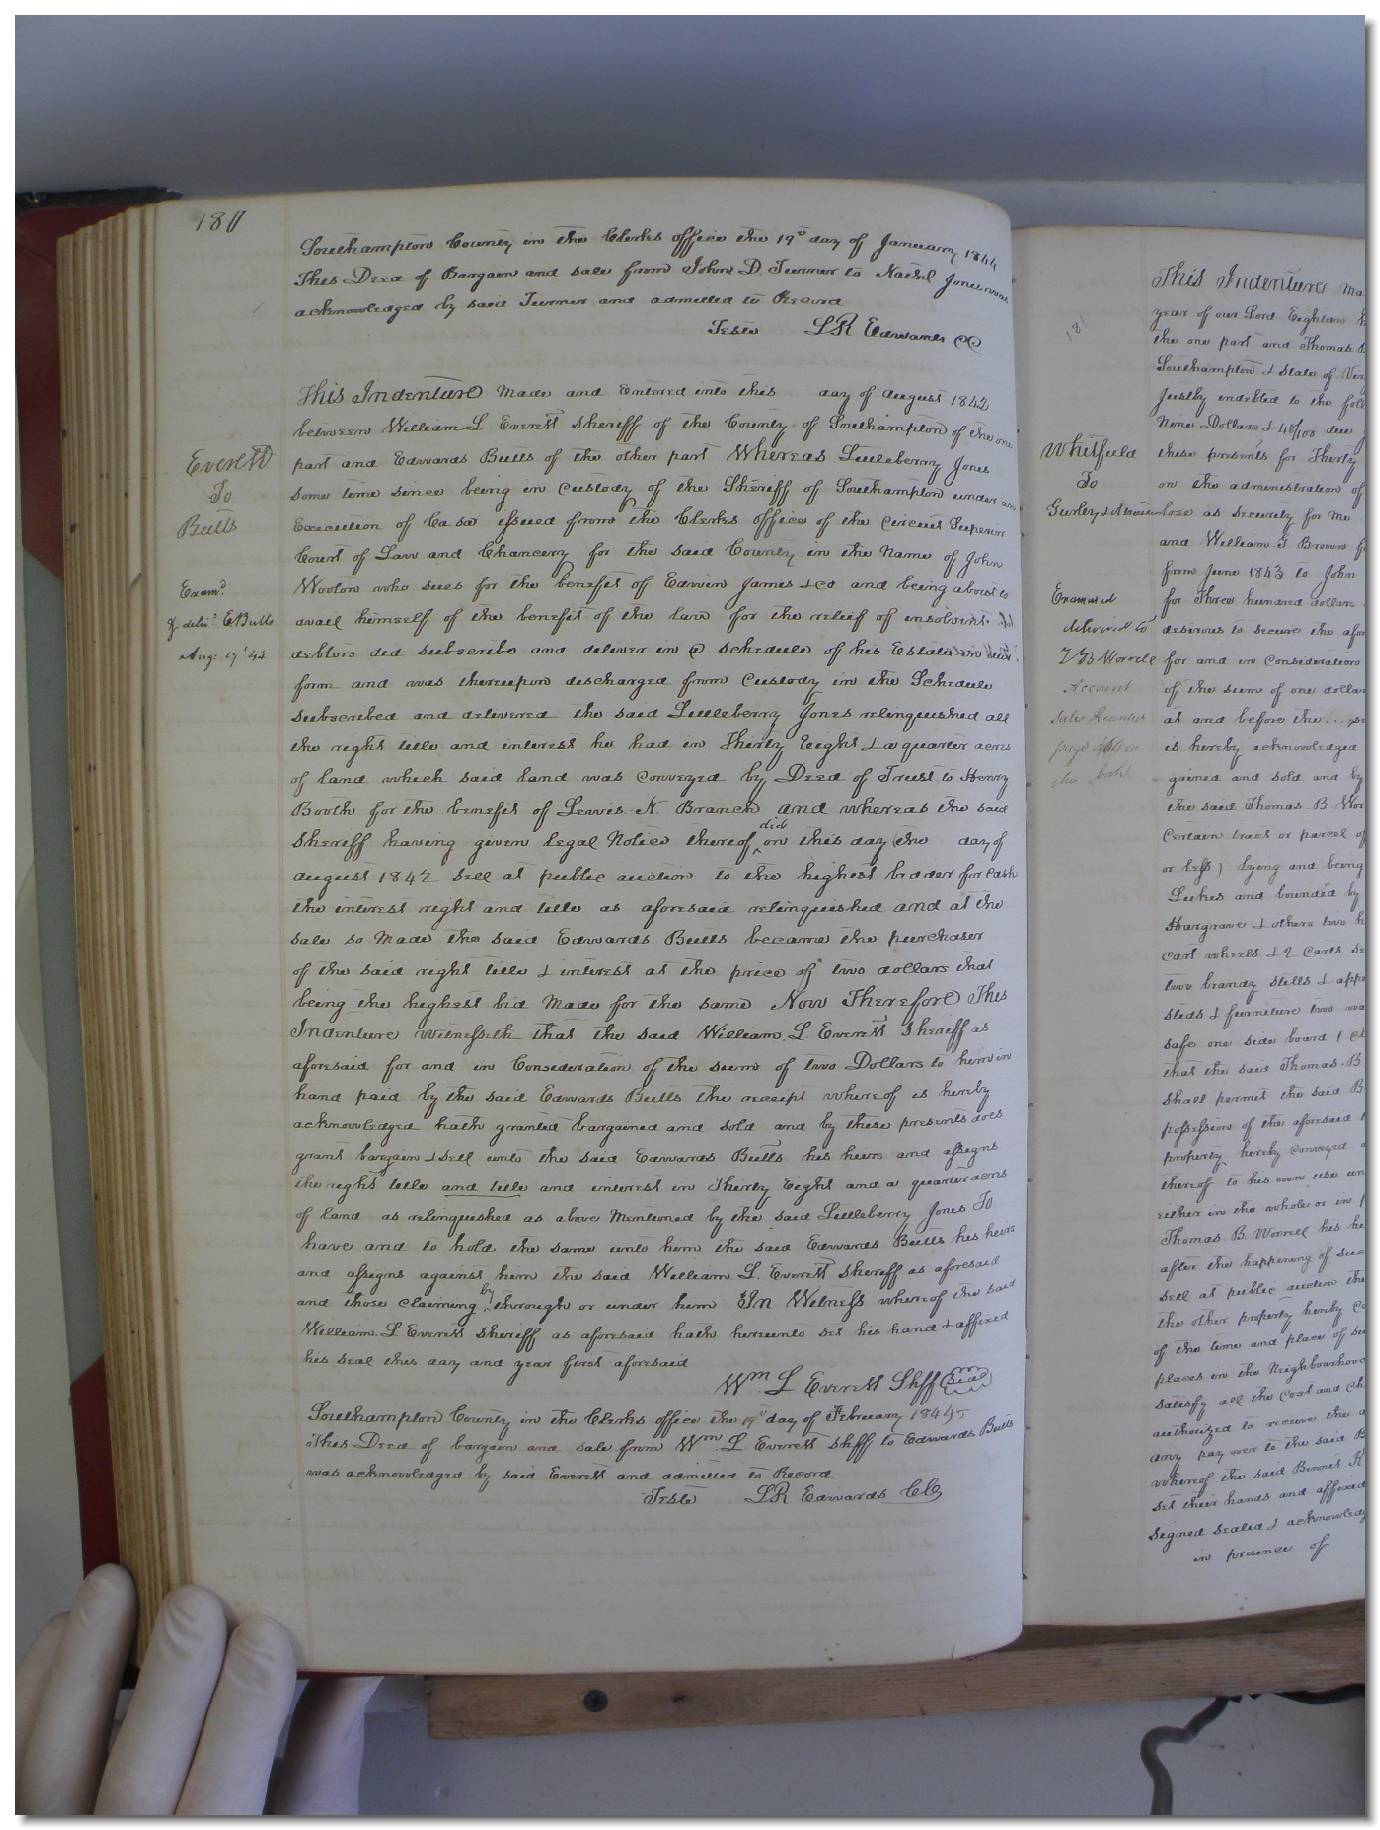 180
Southampton County in the Clerks office the 19th day of January 1844
This Deed of Bargain and sale from John D. Turner to Nathl Jones was
acknowledged by said Turner and admitted to Record
Teste L R Edwards CC
Everett
To
Butts
Examd
& delivd E Butts
Aug: 17' 44
This Indenture Made and Entered into this day of August 1842
between William L Everett Sheriff of the County of Southampton of the one
part and Edwards Butts of the other part Whereas Littleberry Jones
some time since being in Custody of the Sheriff of Southampton under an
Execution of Ca sa issued from the Clerks office of the Circuit Superior
Court of Law and Chancery for the said County in the Name of John
Wooton who sues for the benefit of Edwin James & co and being about to
avail himself of the benefit of the law for the relief of insolvent
debtors did subscribe and deliver in a Schedule of his Estate in such
form and was thereupon discharged from Custody in the Schedule
subscribed and delivered the said Littleberry Jones relinquished all
the right title and interest he had in Thirty Eight & a quarter acres
of land which said land was Conveyed by Deed of Trust to Henry
Booth for the benefit of Lewis N. Branch and whereas the said
Sheriff having given legal Notice thereof did on this day the day of
august 1842 sell at public auction to the highest bidder for Cash
the interest right and title as aforesaid relinquished and at the
sale so Made the said Edwards Butts became the purchaser
of the said right title & interest at the price of two dollars that
being the highest bid Made for the same Now Therefore This
Indenture Witnesseth that the said William L. Everett Sheriff as
aforesaid for and in Consideration of the sum of two Dollars to him in
hand paid by the said Edwards Butts the receipt whereof is hereby
acknowledged hath granted bargained and sold and by these presents does
grant bargain & sell unto the said Edwards Butts his heirs and assigns
the right title and title and interest in Thirty Eight and a quarter acres
of land as relinquished as above Mentioned by the said Littleberry Jones To
have and to hold the same unto him the said Edwards Butts his heirs
and assigns against him the said William L. Everett Sheriff as aforesaid
and those claiming by through or under him In Witness whereof the said
William L Everett Sheriff as aforesaid hath hereunto set his hand & affixed
his seal this day and year first aforesaid
Wm L Everett Shff Seal
Southampton County in the Clerks office the 19th day of February 1844
This Deed of bargain and sale from Wm L Everett Shff to Edwards Butts
was acknowledged by said Everett and admitted to Record
Teste L R Edwards CC
181
Whitfield
To
Gurley &
Examined
delivered to
T B Worrell
Account
sales Recorded
page
this book
This Indenture Ma
year of our Lord Eighteen h
the one part and Thomas B
Southampton & State of Vir
justly indebted to the foll
Nine Dollars & 40/100 due
these presents for Thirty
on the administration of
lose as security for me
and William T Brown f
from June 1843 to John
for Three hundred dollars
desirous to secure the afor
for and in Consideration
of the sum of one dollar
at and before the se
is hereby acknowledged
gained and sold and by
the said Thomas B Wor
Certain tract or parcel of
or less) lying and being
Lukes and bounded by
Hargrave & others two h
cart wheels & 2 Carts
two brandy stills & appa
steds & furniture two
safe one side board 1
that the said Thomas B
shall permit the said B
possession of the aforesaid
property hereby conveyed
thereof to his own use un
either in the whole or in p
Thomas B. Worrell his he
after the happening of suc
sell at public auction the
the other property hereby co
of the time and place of
places in the Neighbourhood
satisfy all the Cost and ch
authorized to receive the
any pay over to the said B
whereof the said Bennet
set their hands and affixed
signed sealed & acknowledg
in presence of